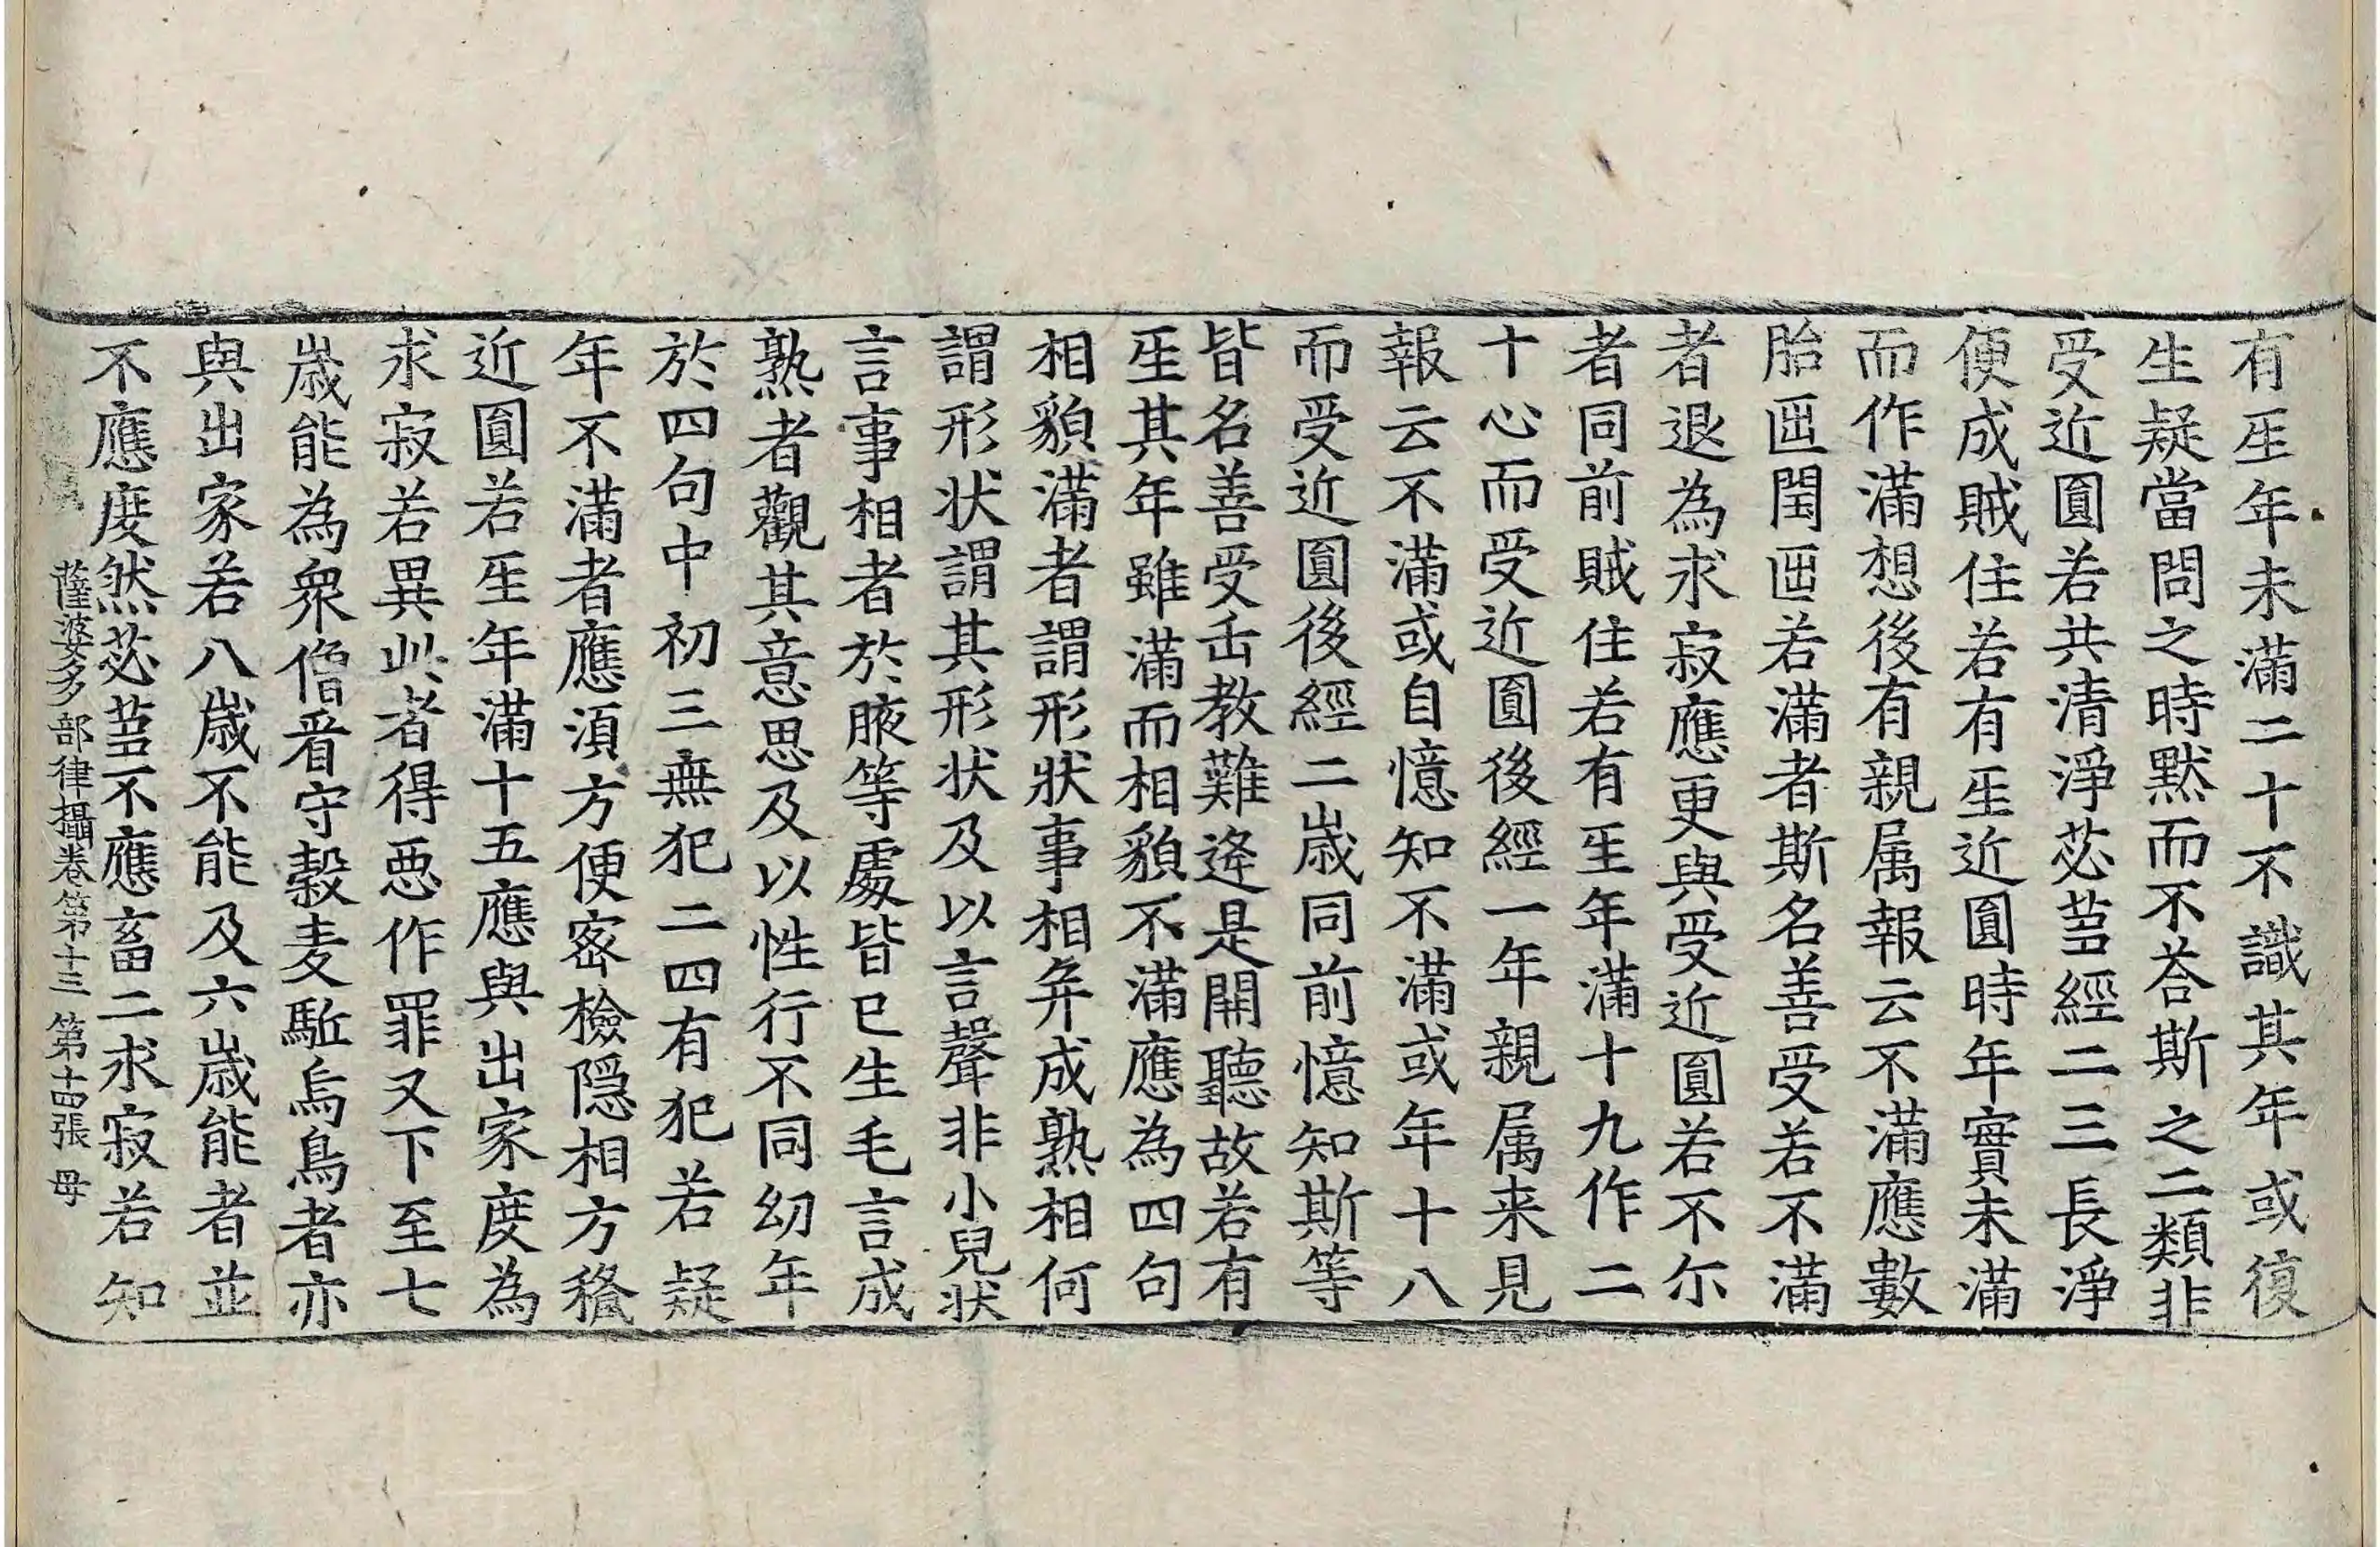 有𤯔年未滿二十不識其年或復
生疑當問之時默而不荅斯之二類非
受近圓若共清淨苾芻經二三長淨
便成賊住若有𤯔近圓時年實未滿
而作滿想後有親属報云不滿應數
胎𠥱閏𠥱若滿者斯名善受若不滿
者退為求寂應更與受近圓若不尒
者同前賊住若有𤯔年滿十九作二
十心而受近圓後經一年親属来見
報云不滿或自憶知不滿或年十八
而受近圓後經二歳同前憶知斯等
皆名善受缶教難逄是開聽故若有
𤯔其年雖滿而相貌不滿應為四句
相貌滿者謂形狀事相并成熟相何
謂形状謂其形状及以言聲非小兒状
言事相者於腋等處皆已生毛言成
熟者觀其意思及以性行不同幼年
於四句中初三無犯二四有犯若疑
年不滿者應須方便密檢隱相方稱
近圓若𤯔年滿十五應與出家度為
求寂若異此者得惡作罪又下至七
歳能為衆僧畨守穀麦駈烏鳥者亦
與出家若八歳不能及六歳能者並
不應度然苾芻不應畜二求寂若知
薩婆多部律攝卷第十三 第十四張 毋